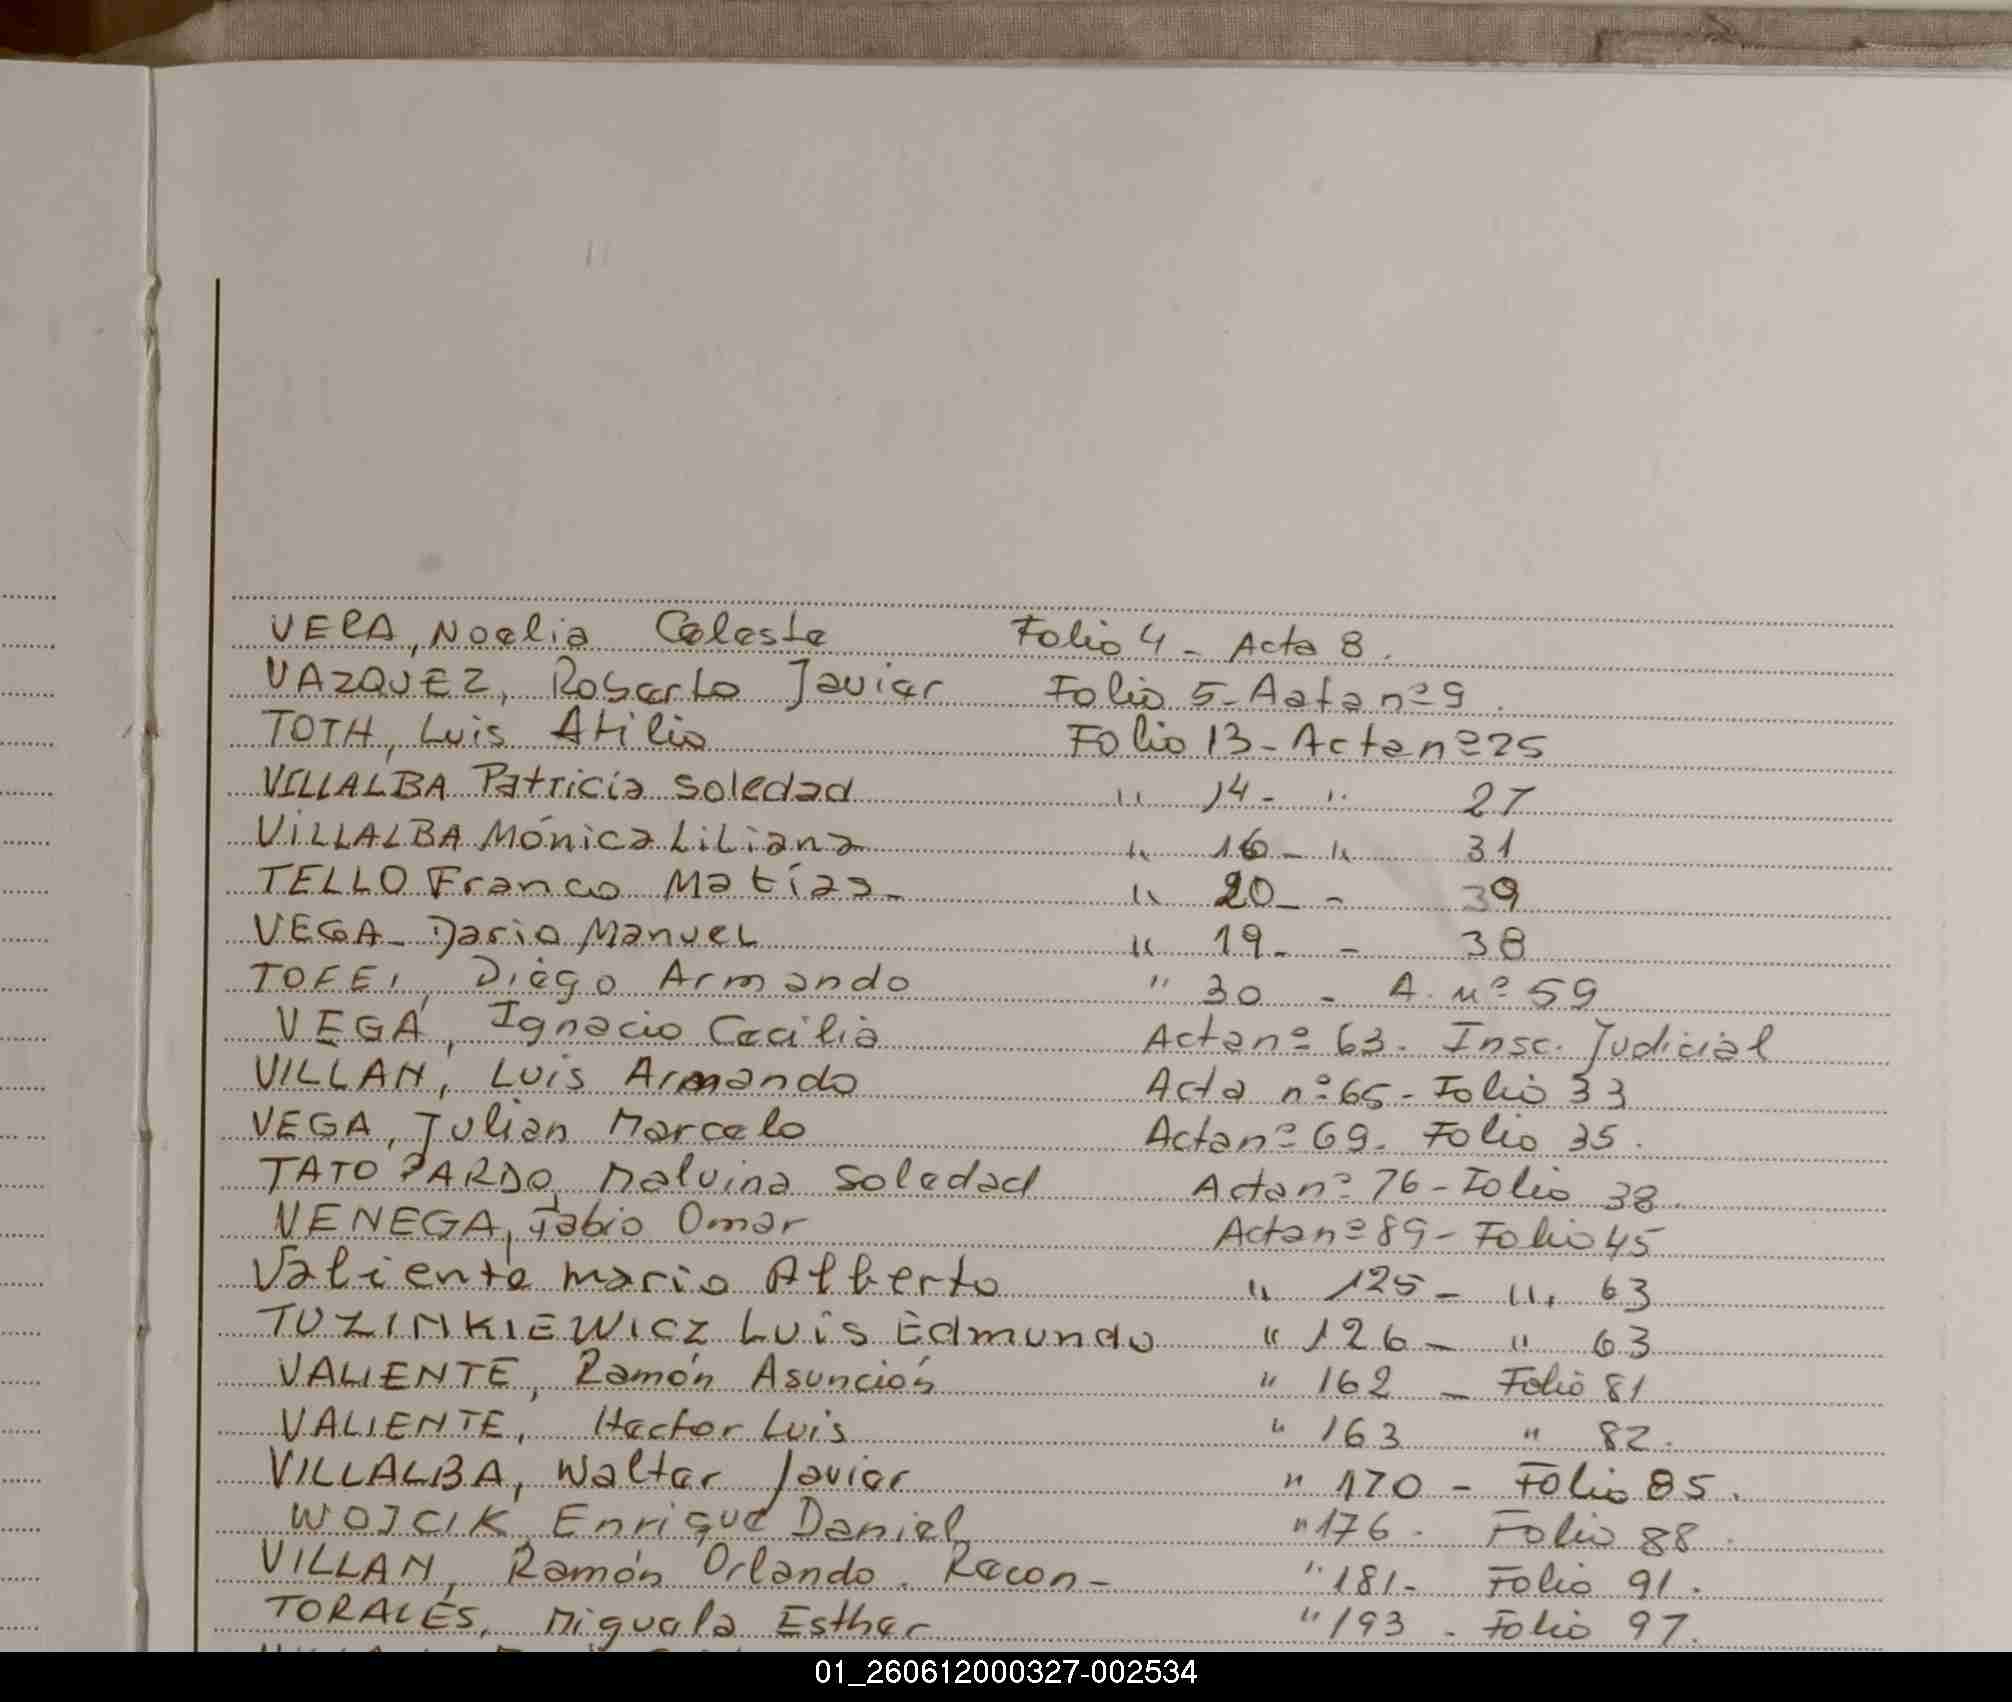 VERA, Noelia Celeste Folio 4 - Acta 8.
VAZQUEZ, Roberto Javier Folio 5 - Aata nº 9.
TOTH, Luis Atilio Folio 13 - Acta nº 25
VILLALBA Patricia Soledad " 14 - " 27
VILLALBA Mónica Liliana " 16 - " 31
TELLO Franco Matías - " 20 - - 39
VEGA - Dario Manuel " 19 - - 38
TOFEI, Diego Armando " 30 - A. nº 59
VEGA, Ignacio Cecilia Acta nº 63. Insc. Judicial
VILLAN, Luis Armando Acta nº 65 - Folio 33
VEGA, Julian Marcelo Acta nº 69. Folio 35.
TATO PARDO, Malvina Soledad Acta nº 76 - Folio 38.
VENEGA, Fabio Omar Acta nº 89 - Folio 45
Valiente Mario Alberto " 125 - ". 63
TUZINKIEWICZ Luis Edmundo " 126 - " 63
VALIENTE, Ramón Asunción " 162 - Folio 81
VALIENTE, Hector Luis " 163 " 82.
VILLALBA, Walter Javier " 170 - Folio 85.
WOJCIK, Enrique Daniel " 176. Folio 88.
VILLAN, Ramón Orlando. Recon- " 181- Folio 91.
TORALES, Miguela Esther " 193 - Folio 97.
01_260612000327-002534